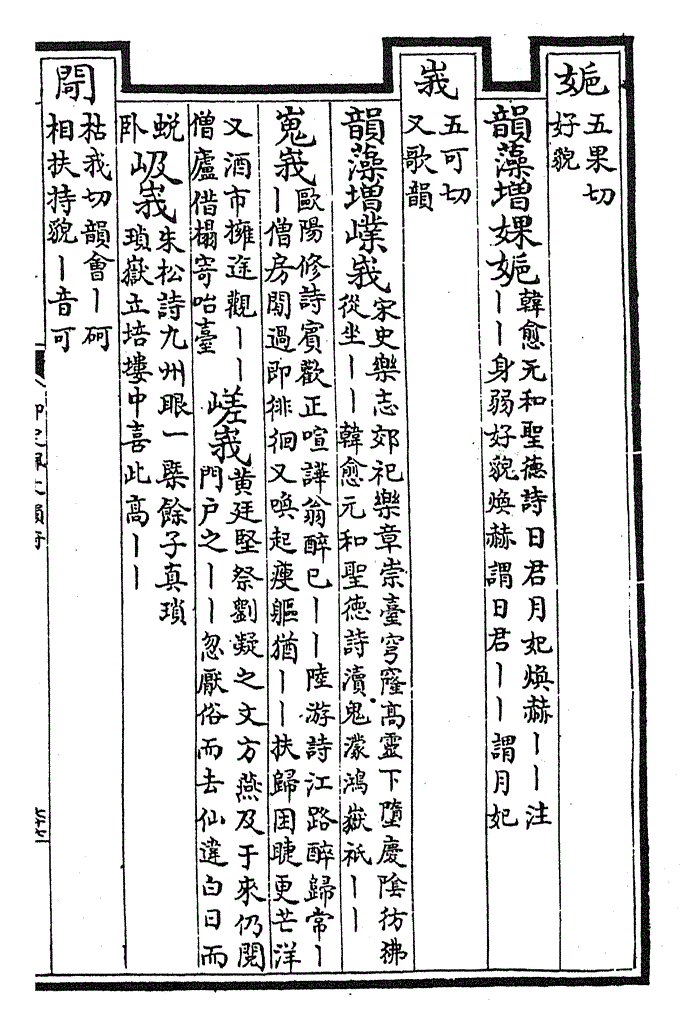 妮 五果切
好貌
韻藻增婐妮 韓愈元和聖德詩日君月妃煥赫丨丨注
丨丨身弱好貌煥赫謂日君丨丨謂月妃
峩 五可切
又歌韻
韻藻增㠔峩 宋史樂志郊祀樂章崇臺穹窿高靈下墮慶陰彷彿
從坐丨丨韓愈元和聖德詩瀆鬼濛鴻嶽祇丨丨
嵬峩 歐陽修詩賓歡正喧譁翁醉已丨丨陸游詩江路醉歸常丨
丨僧房閒過即徘徊又喚起瘦軀猶丨丨扶歸困睫更芒洋
又酒市擁途觀丨丨
僧廬借榻寄咍臺
嵯峩 黃廷堅祭劉凝之文方燕及于來仍閱
門戶之丨丨忽厭俗而去仙違白日而
蛻
卧
岋峩 朱松詩九州眼一槩餘子真瑣
瑣嶽立培塿中喜此高丨丨
閜 枯我切韻會丨砢
相扶持貌丨音可